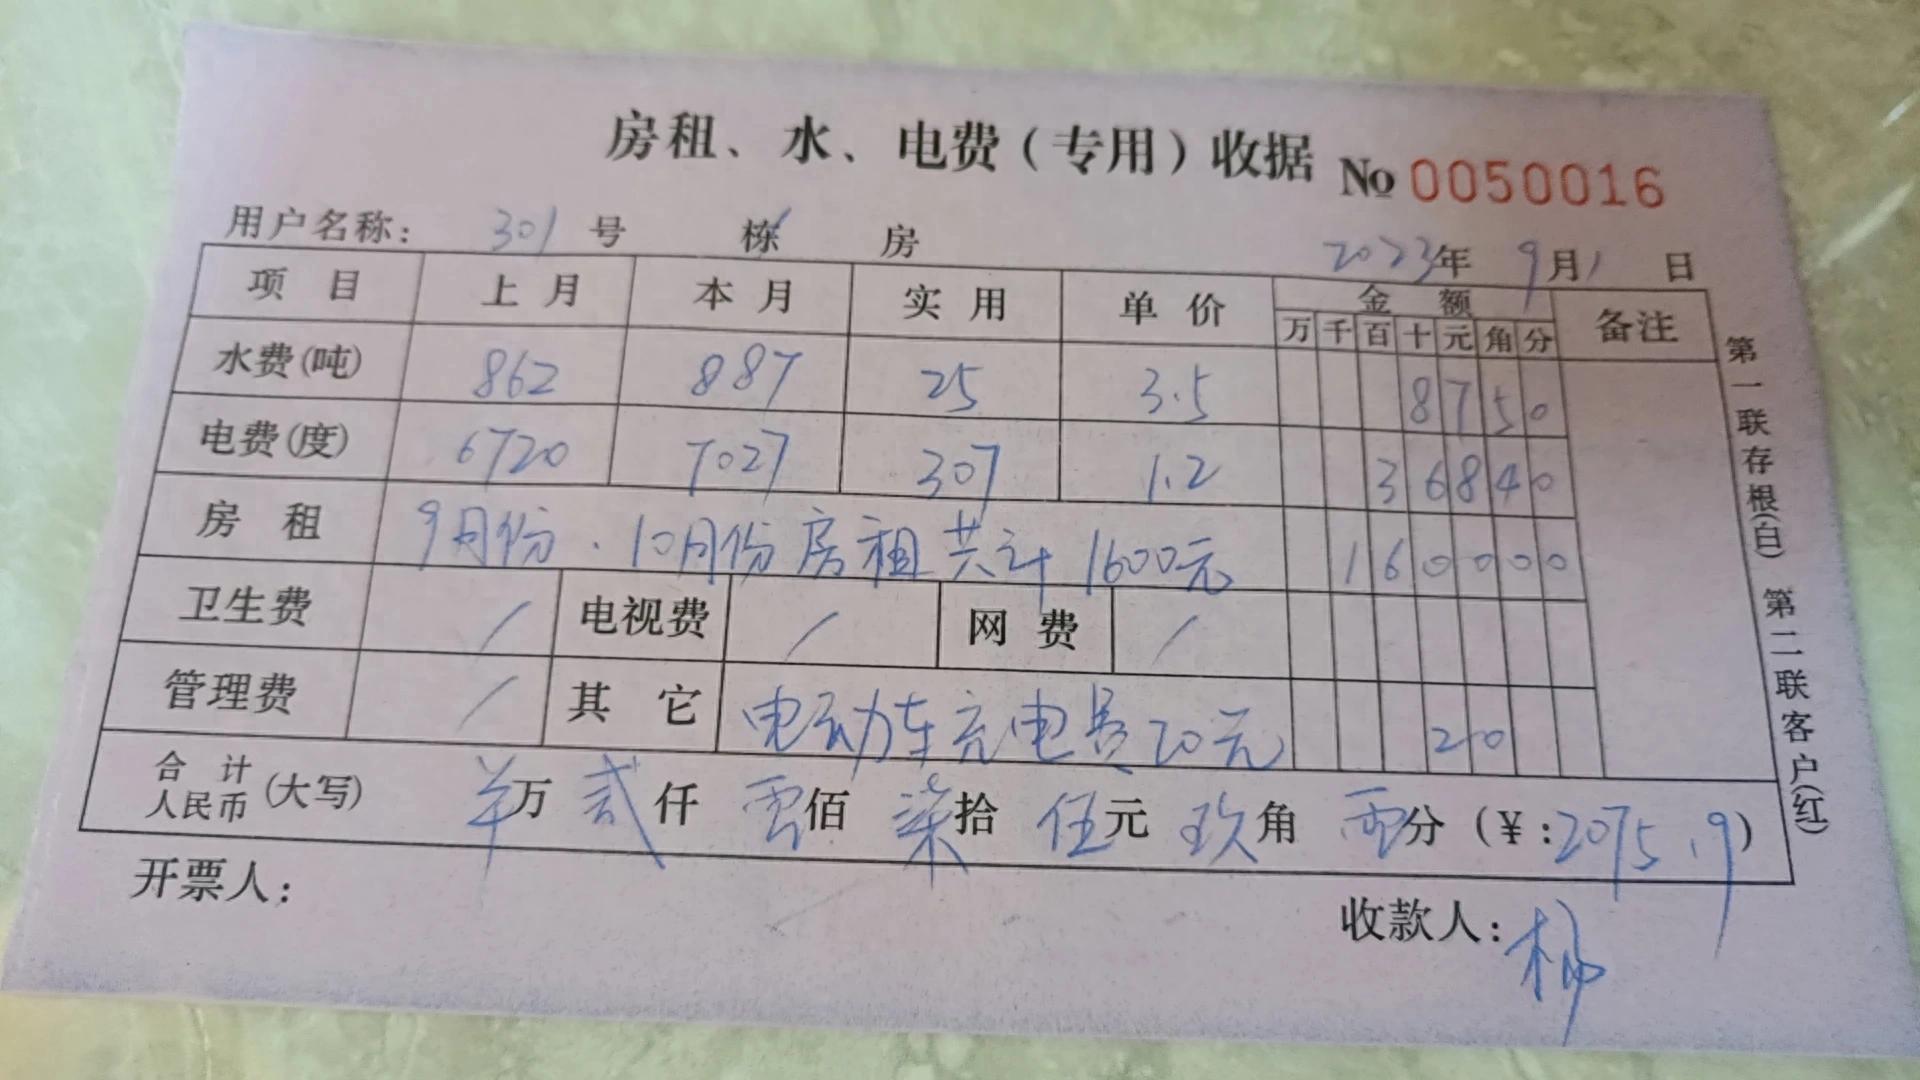 房租、水、电费(专用)收据 No 0050016
用户名称: 301 号 栋 房 2023年 9月1日
项目 上月 本月 实用 单价 金额 备注
万 千 百 十 元 角 分
水费(吨) 862 887 25 3.5 8 7 5 0
电费(度) 6720 7027 307 1.2 3 6 8 4 0
房租 9月份、10月份房租共计1600元 1 6 0 0 0 0
卫生费 / 电视费 / 网费 /
管理费 / 其它 电动车充电费20元 2 0
合计人民币(大写) 羊万 贰仟 零佰 柒拾 伍元 玖角 零分 (¥:2075.9)
开票人: 收款人: 杨
第一联存根(白) 第二联客户(红)